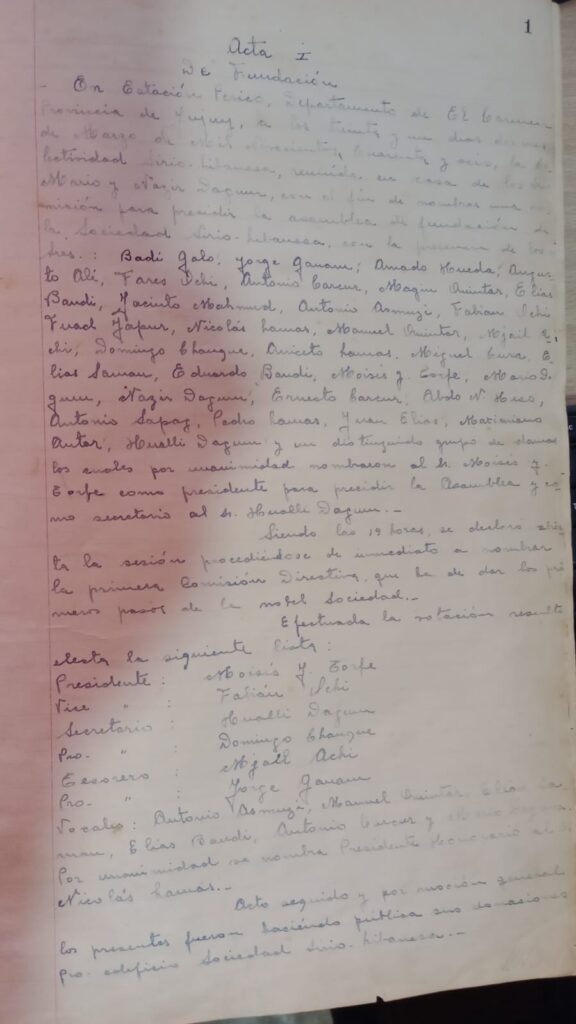 1
Acta I
De Fundación
- En Estación Perico, Departamento de El Carmen
Provincia de Jujuy, a los treinta y un dias del mes
de Marzo de Mil Novecientos Cuarenta y seis, la Co-
lectividad Sirio-Libanesa, reunida en casa de los Sres.
Mario y Nazir Dagum, con el fin de nombrar una co-
misión para presidir la asamblea de fundación de
la Sociedad Sirio-Libanesa, con la presencia de los
Sres.: Badi Galo; Jorge Ganam; Amado Hueda; Augus-
to Alí, Fares Ichi, Antonio Carcur, Quintar, Elias
Baudi, Jacinto Mahmud, Antonio Asmuzi, Fabián Ichi
Fuad Japur, Nicolás Lamas, Manuel Quintar, Mjail A-
chi, Domingo Chauque, Aniceto Lamas, Miguel Cura, E-
lias Saman, Eduardo Baudi, Moisés J. Torfe, Mario Da-
gum, Nazir Dagum, Ernesto Carcur, Abdo N.
Antonio Sapag, Pedro Lamas, Juan Elias, Maximiano
Autar, Hualli Dagum y un distinguido grupo de damas
los cuales por unanimidad nombraron al Sr. Moisés J.
Torfe como presidente para precidir la Asamblea y co-
mo secretario al Sr. Hualli Dagum._
Siendo las 19 horas, se declaró abier-
ta la sesión procediéndose de inmediato a nombrar
la primera Comisión Directiva, que ha de dar los pri-
meros pasos de la novel Sociedad._
Efectuada la votación resultó
electa la siguiente lista:
Presidente: Moisés J. Torfe
Vice " : Fabián Ichi
Secretario : Hualli Dagum
Pro. " : Domingo Chauque
Tesorero : Mjaíl Achi
Pro. " : Jorge Ganam
Vocales: Antonio Asmuzi, Manuel Quintar, Elias Sa-
man, Elias Baudi, Antonio Carcur y Mario Dagum.
Por unanimidad se nombra Presidente Honorario al Sr.
Nicolás Lamas._
Acto seguido y por moción general
los presentes fueron haciéndo pública sus donaciones
pro. edificio Sociedad Sirio-Libanesa._